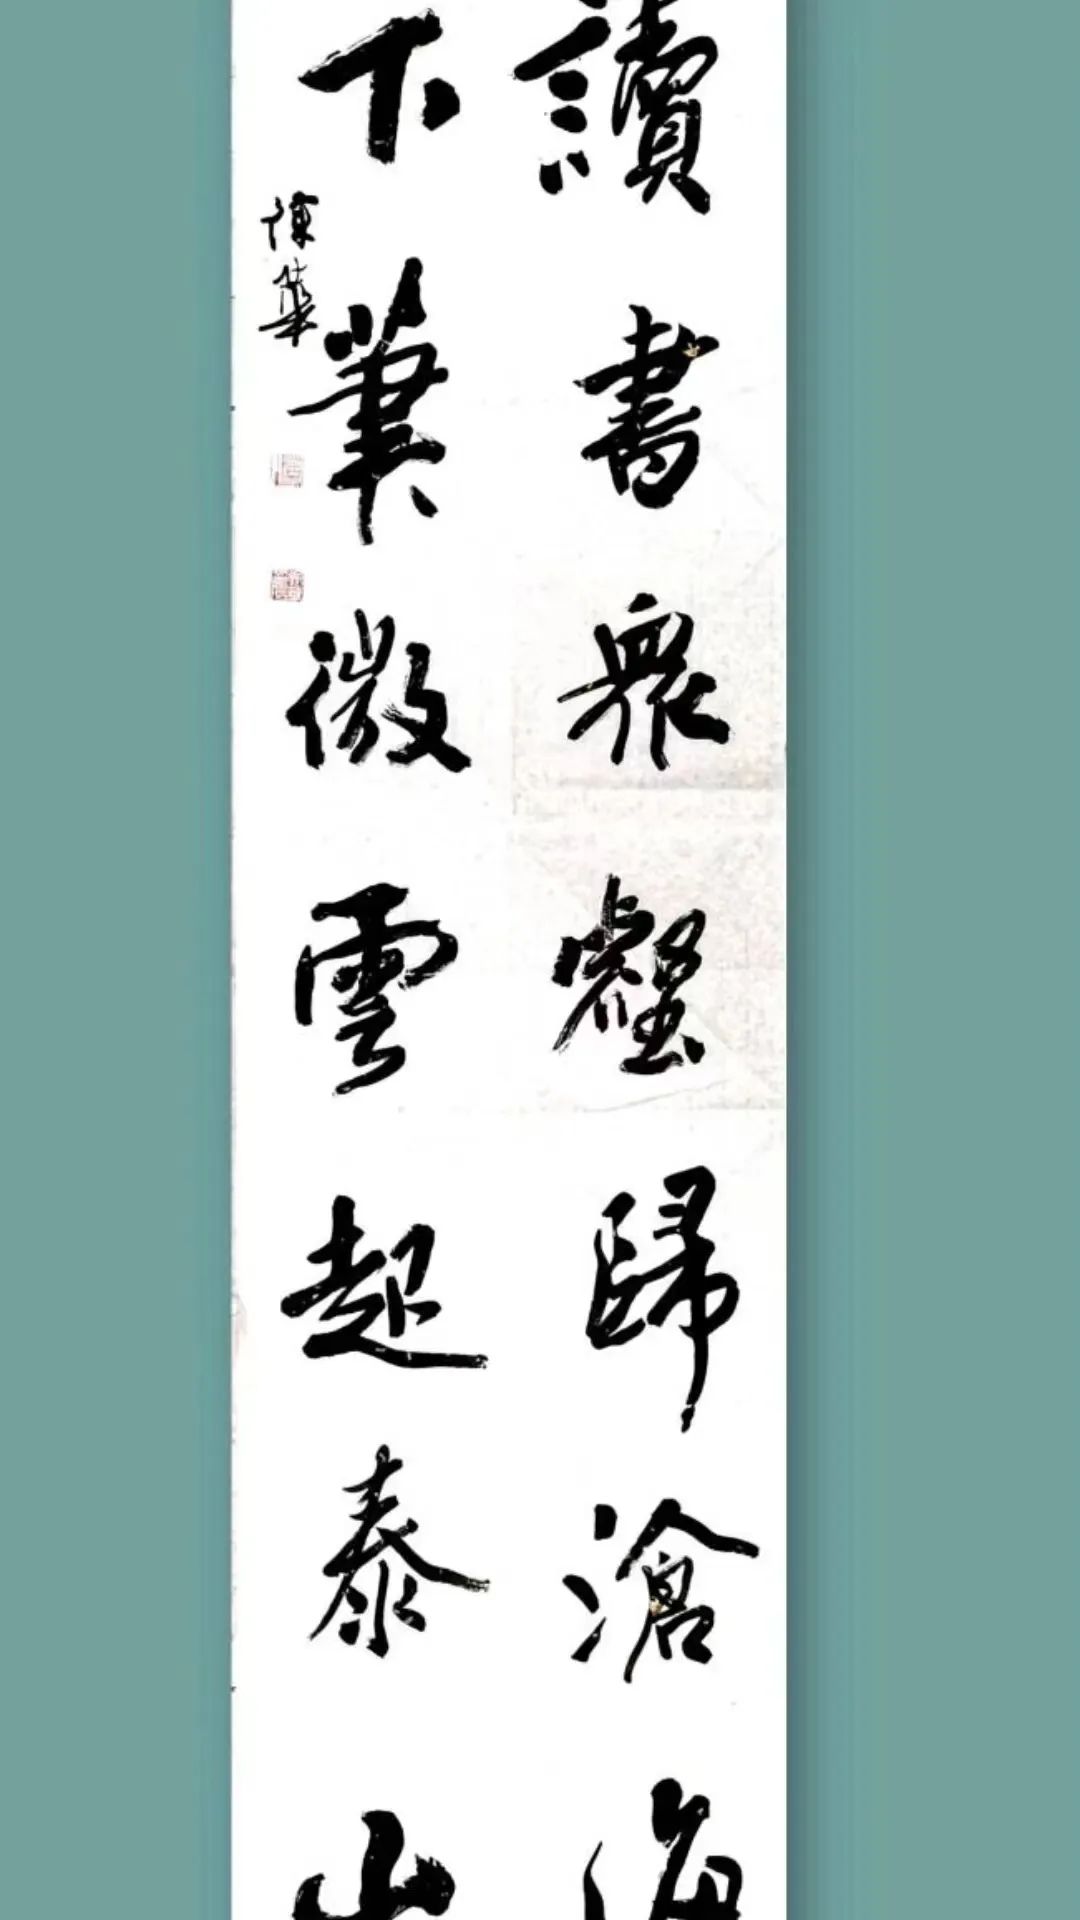 讀書衆壑歸滄海
下筆微雲起泰山
陳華